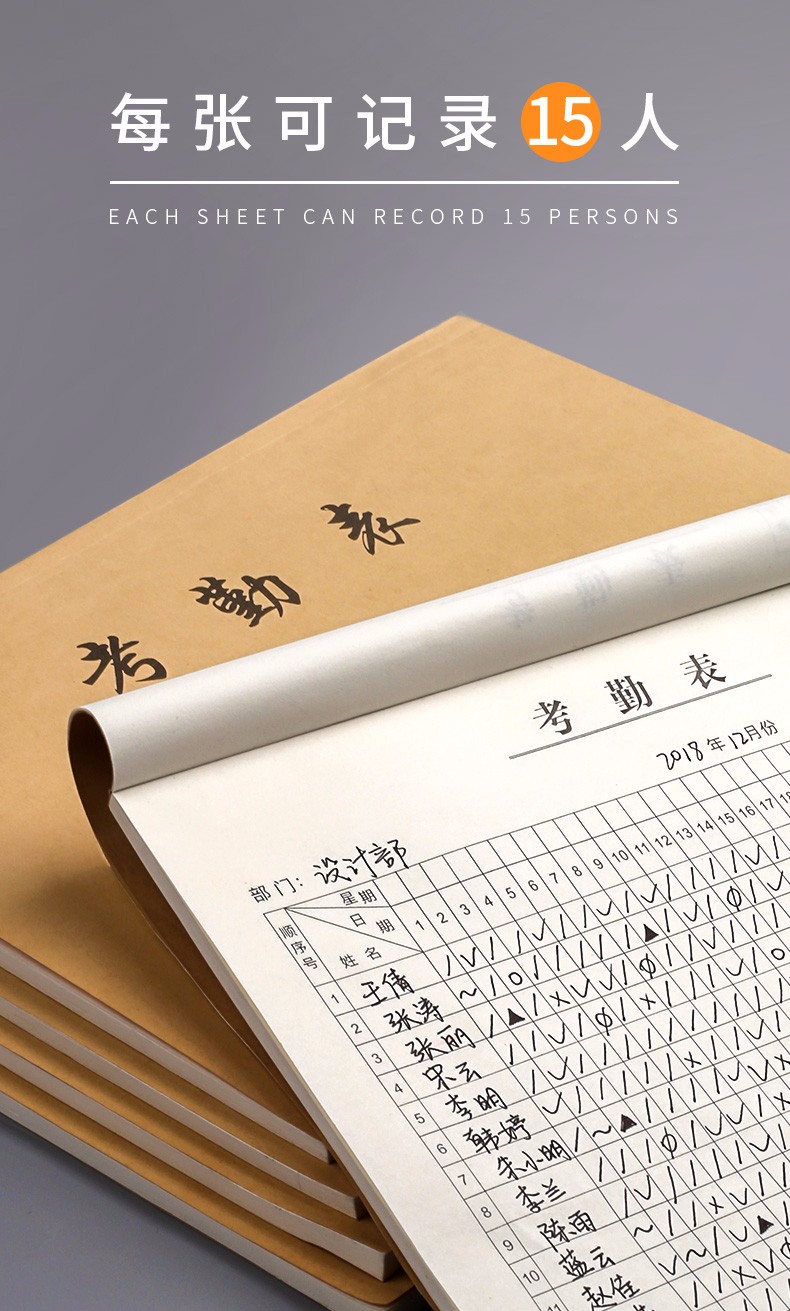 每张可记录15人
EACH SHEET CAN RECORD 15 PERSONS
考勤表
考勤表
2018年12月份
部门：设计部
星期
日期
顺序号
姓名
1 2 3 4 5 6 7 8 9 10 11 12 13 14 15 16 17 18
1 王倩
2 张涛
3 张丽
4 宋云
5 李明
6 韩婷
7 朱小明
8 李兰
9 陈雨
10 蓝云
11 赵佳